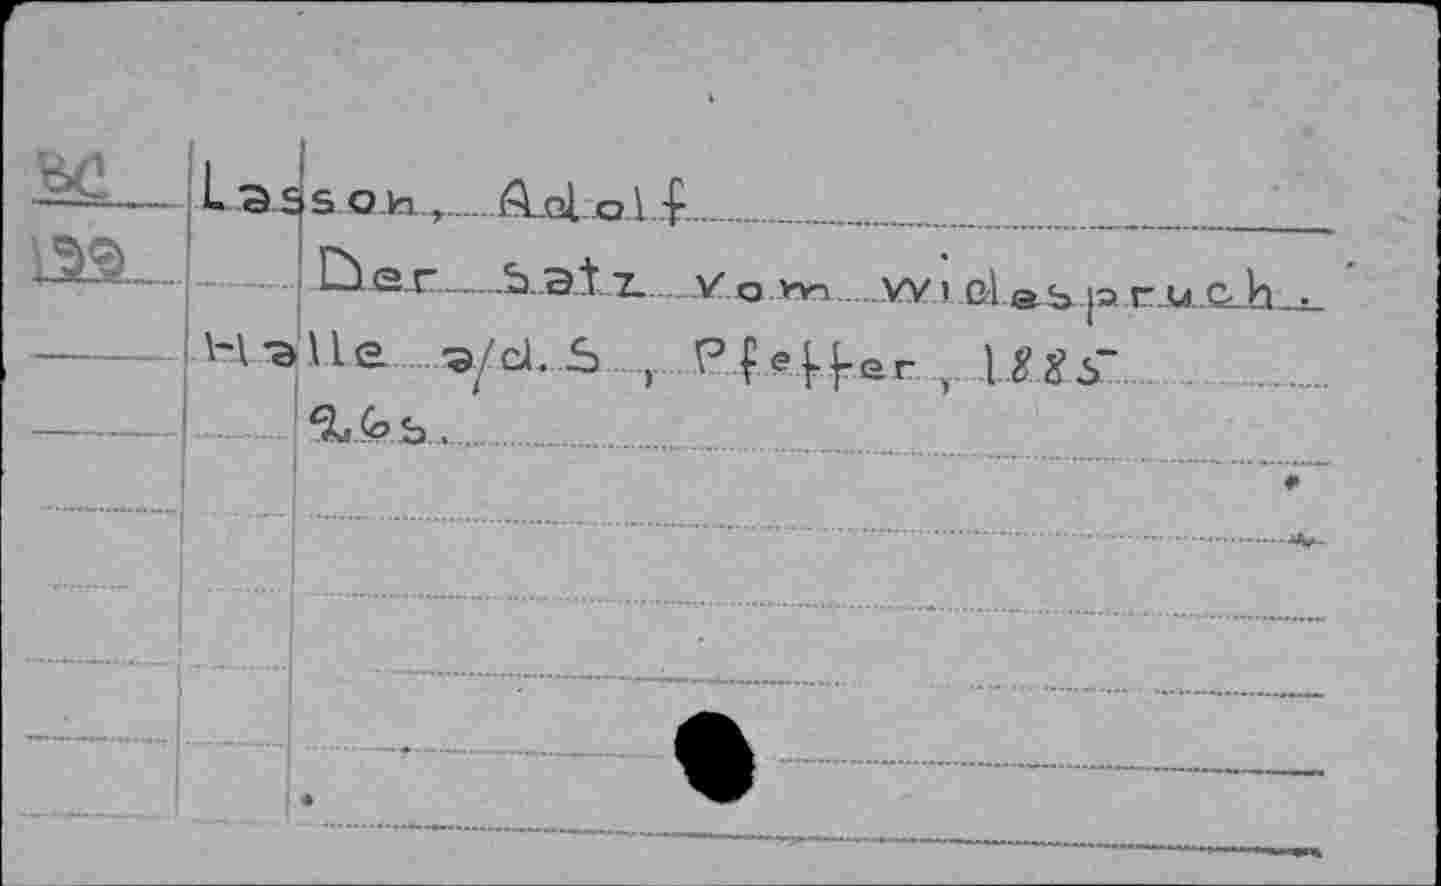 BC Lasson, Adolf
199 Der Satz vom widespruch.
Halle a/d. S, Pfeffer, 1885
26 s.